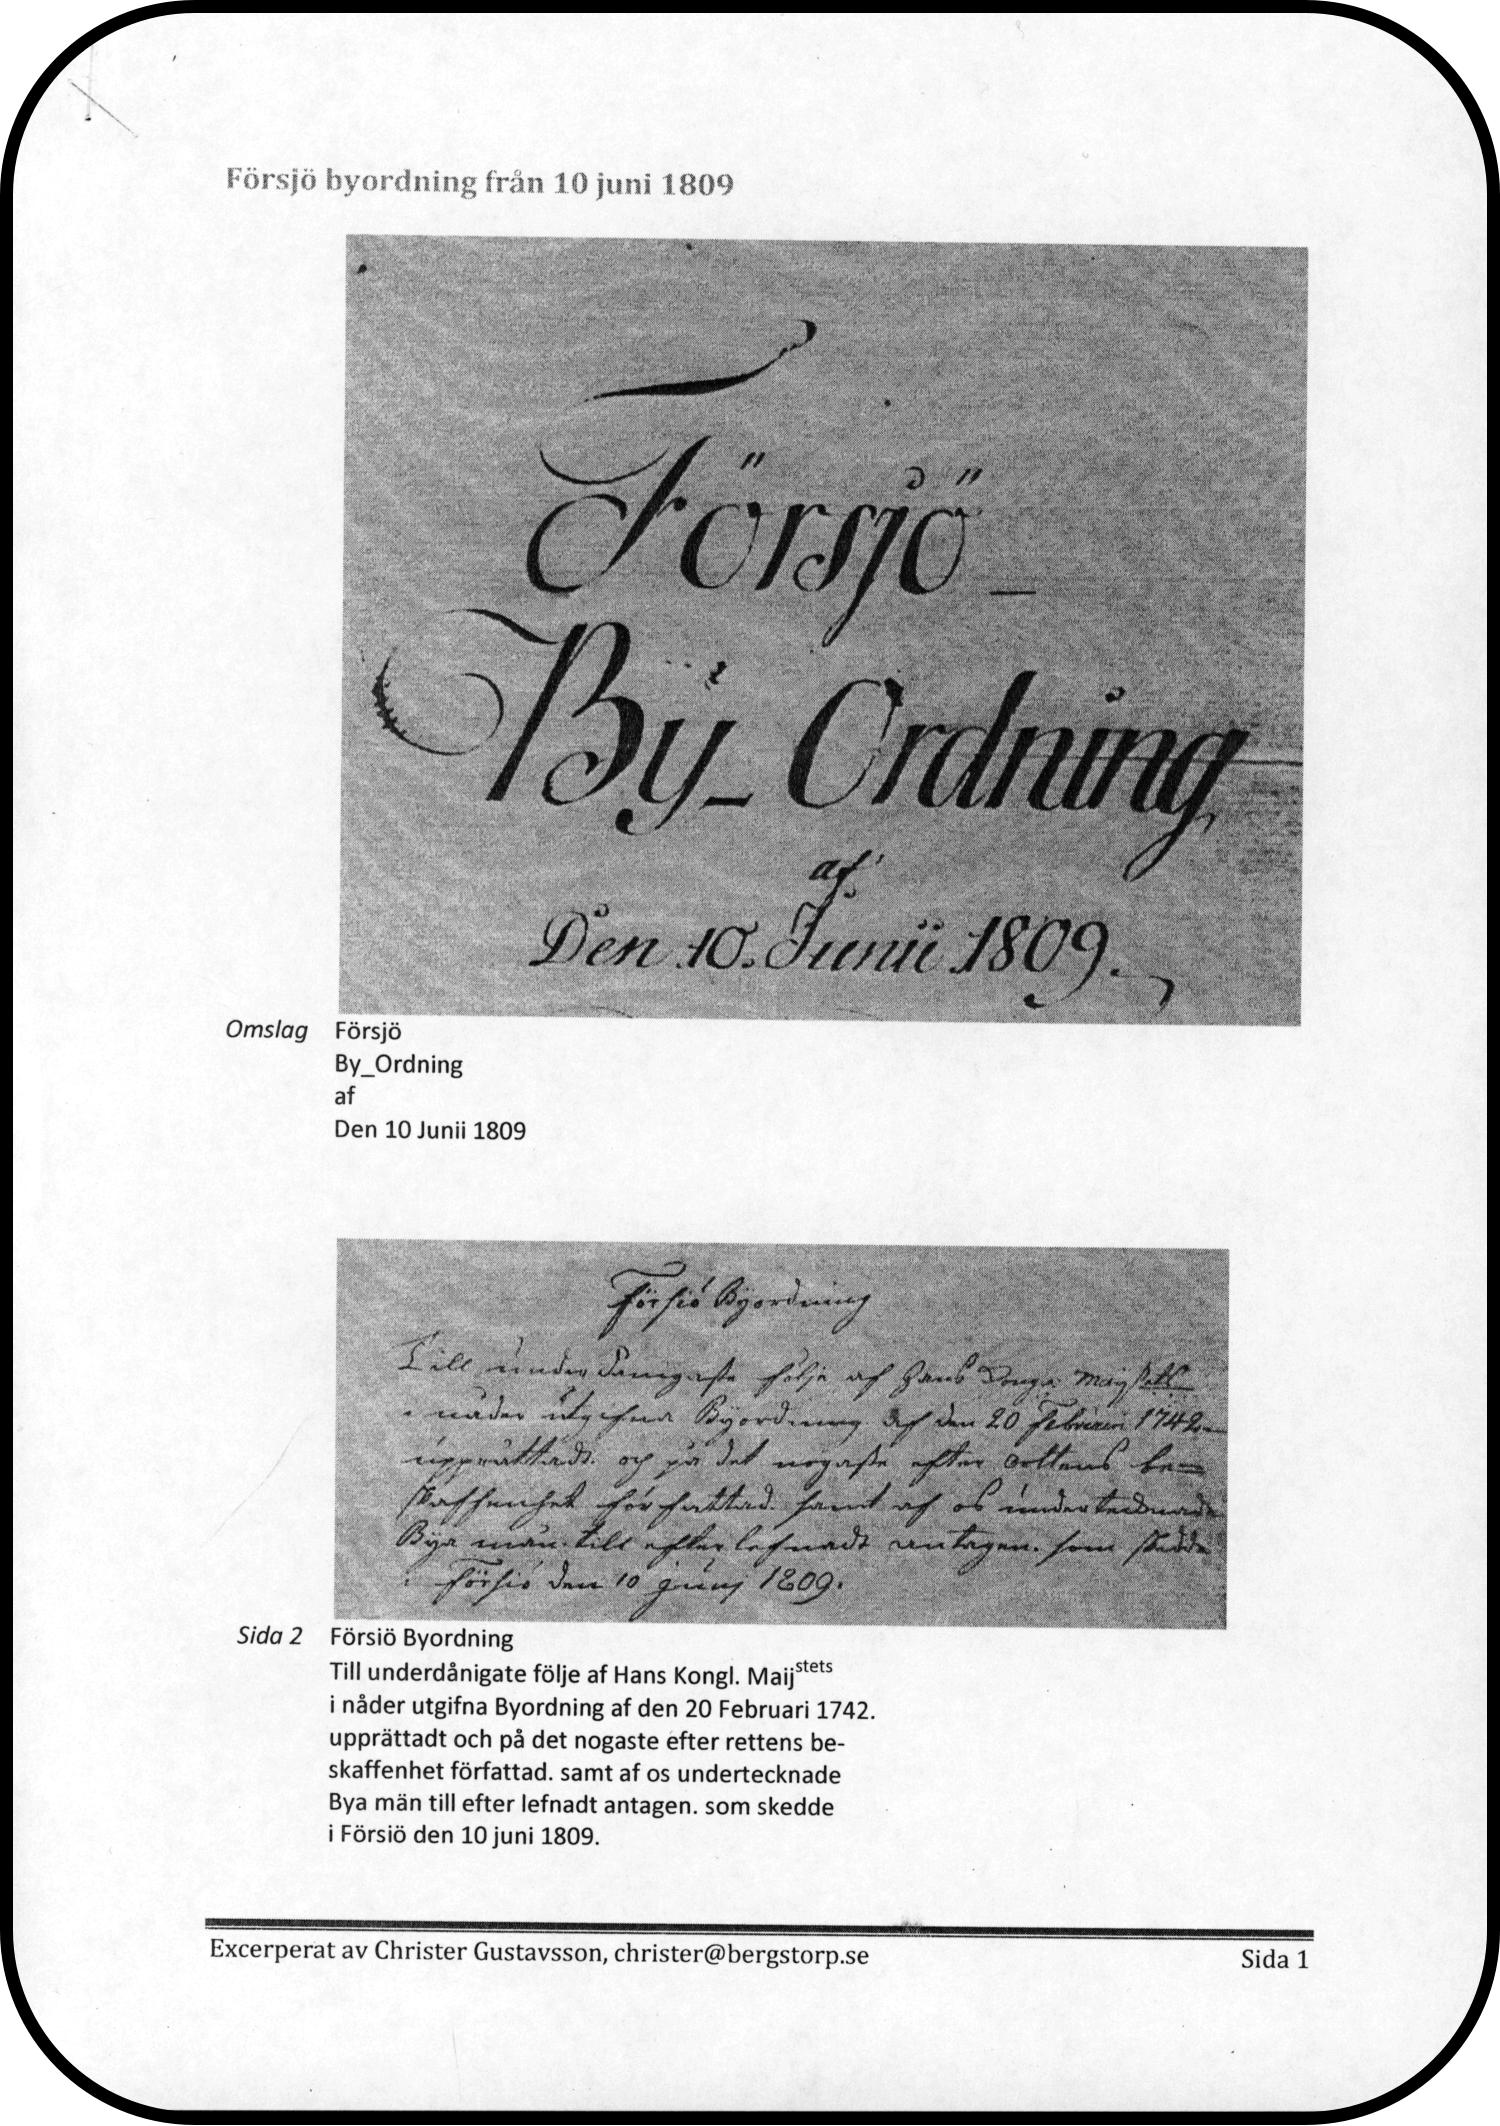 Försjö byordning från 10 juni 1809
Försjö_
By_Ordning
af
Den 10. Junii 1809.
Omslag Försjö
By_Ordning
af
Den 10 Junii 1809
Försiö Byordning
Till underdånigaste följe af Hans Kongl. Maijstetz
i nåder utgifna Byordning af den 20 Februari 1742
upprättadt och på det nogaste efter be=
skaffenhet författad. samt af os undertecknade
Bya män till efterlefnadt antagen. som skedde
i Försiö den 10 junj 1809.
Sida 2 Försiö Byordning
Till underdånigate följe af Hans Kongl. Maijstets
i nåder utgifna Byordning af den 20 Februari 1742.
upprättadt och på det nogaste efter rettens be-
skaffenhet författad. samt af os undertecknade
Bya män till efter lefnadt antagen. som skedde
i Försiö den 10 juni 1809.
Excerperat av Christer Gustavsson, christer@bergstorp.se Sida 1